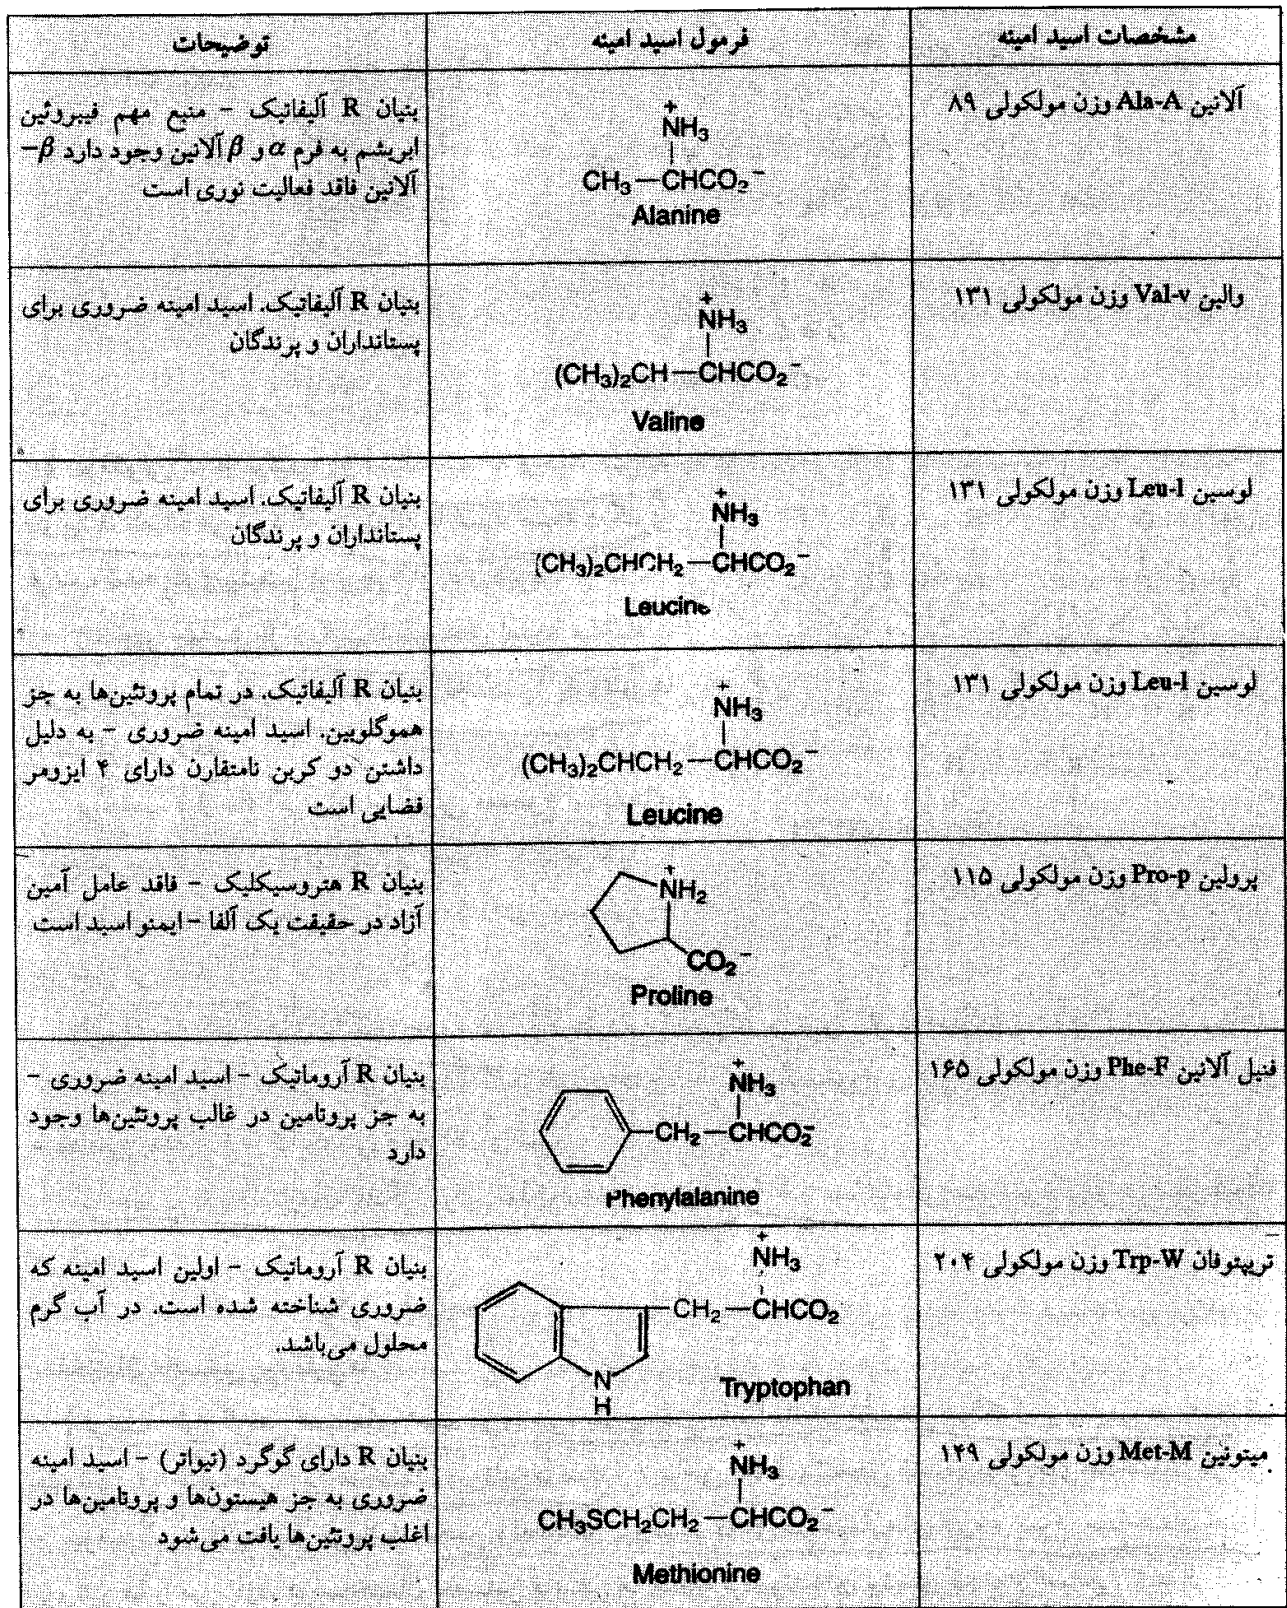 مشخصات اسید امینه
فرمول اسید امینه
توضیحات
آلانین Ala-A وزن مولکولی ۸۹
+
NH₃
CH₃—CHCO₂⁻
Alanine
بنیان R آلیفاتیک – منبع مهم فیبروئین
ابریشم به فرم α و β آلانین وجود دارد β–
آلانین فاقد فعالیت نوری است
والین Val-v وزن مولکولی ۱۳۱
+
NH₃
(CH₃)₂CH—CHCO₂⁻
Valine
بنیان R آلیفاتیک. اسید امینه ضروری برای
پستانداران و پرندگان
لوسین Leu-l وزن مولکولی ۱۳۱
+
NH₃
(CH₃)₂CHCH₂—CHCO₂⁻
Leucine
بنیان R آلیفاتیک. اسید امینه ضروری برای
پستانداران و پرندگان
لوسین Leu-l وزن مولکولی ۱۳۱
+
NH₃
(CH₃)₂CHCH₂—CHCO₂⁻
Leucine
بنیان R آلیفاتیک. در تمام پروتئین‌ها به جز
هموگلوبین. اسید امینه ضروری – به دلیل
داشتن دو کربن نامتقارن دارای ۴ ایزومر
فضایی است
پرولین Pro-p وزن مولکولی ۱۱۵
+
NH₂
CO₂⁻
Proline
بنیان R هتروسیکلیک – فاقد عامل آمین
آزاد در حقیقت یک آلفا – ایمنو اسید است
فنیل آلانین Phe-F وزن مولکولی ۱۶۵
+
NH₃
CH₂—CHCO₂⁻
Phenylalanine
بنیان R آروماتیک – اسید امینه ضروری –
به جز پروتامین در غالب پروتئین‌ها وجود
دارد
تریپتوفان Trp-W وزن مولکولی ۲۰۴
+
NH₃
CH₂—CHCO₂
N
H
Tryptophan
بنیان R آروماتیک – اولین اسید امینه که
ضروری شناخته شده است. در آب گرم
محلول می‌باشد.
میتونین Met-M وزن مولکولی ۱۴۹
+
NH₃
CH₃SCH₂CH₂—CHCO₂⁻
Methionine
بنیان R دارای گوگرد (تیواتر) – اسید امینه
ضروری به جز هیستون‌ها و پروتامین‌ها در
اغلب پروتئین‌ها یافت می‌شود